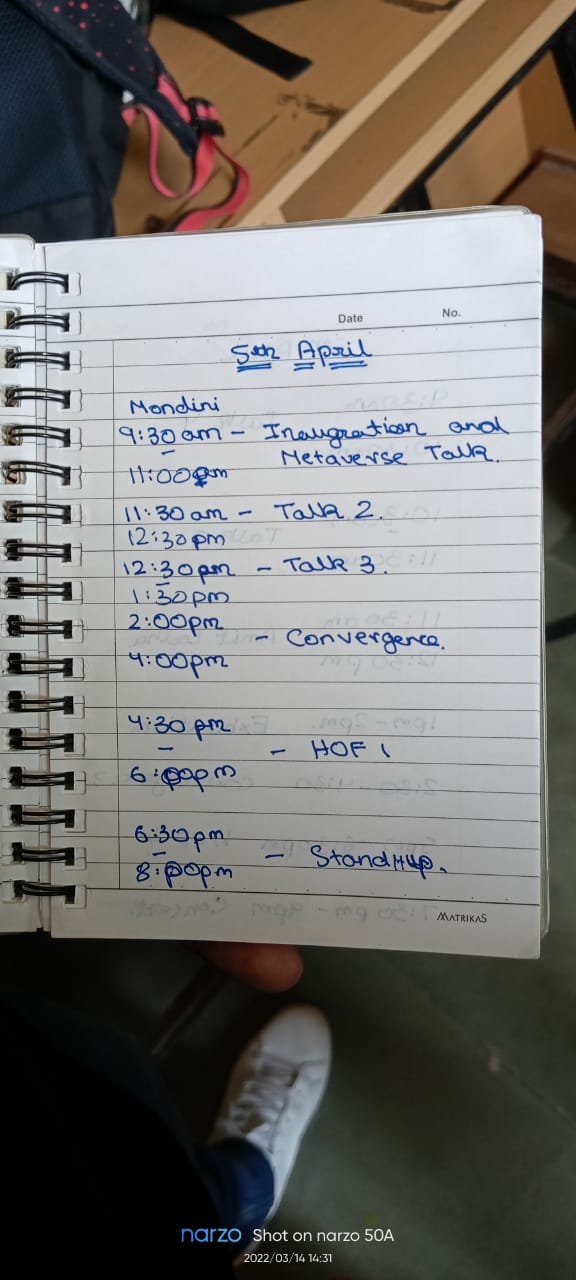 Date No.
5th April
Mondini
9:30 am - Inaugration and
Metaverse Talk.
11:00 pm
11:30 am - Talk 2.
12:30 pm
12:30 pm - Talk 3.
1:30 pm
2:00 pm
- Convergence.
4:00 pm
4:30 pm
- HOF 1
6:00 pm
6:30 pm
- StandUp.
8:00 pm
MATRIKAS
narzo Shot on narzo 50A
2022/03/14 14:31